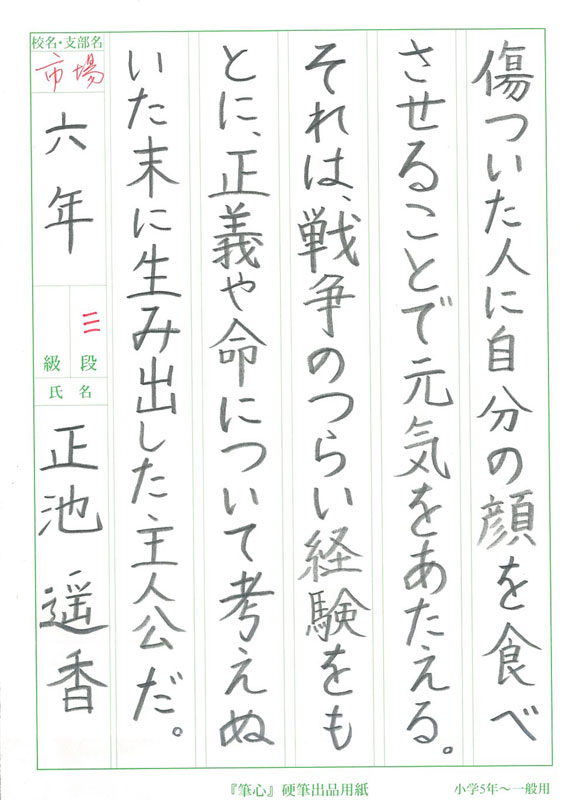 傷ついた人に自分の顔を食べ
させることで元気をあたえる。
それは、戦争のつらい経験をも
とに、正義や命について考えぬ
いた末に生み出した、主人公だ。
校名・支部名
市場
六年
三
段
級
氏名
正池遥香
『筆心』硬筆出品用紙
小学5年〜一般用